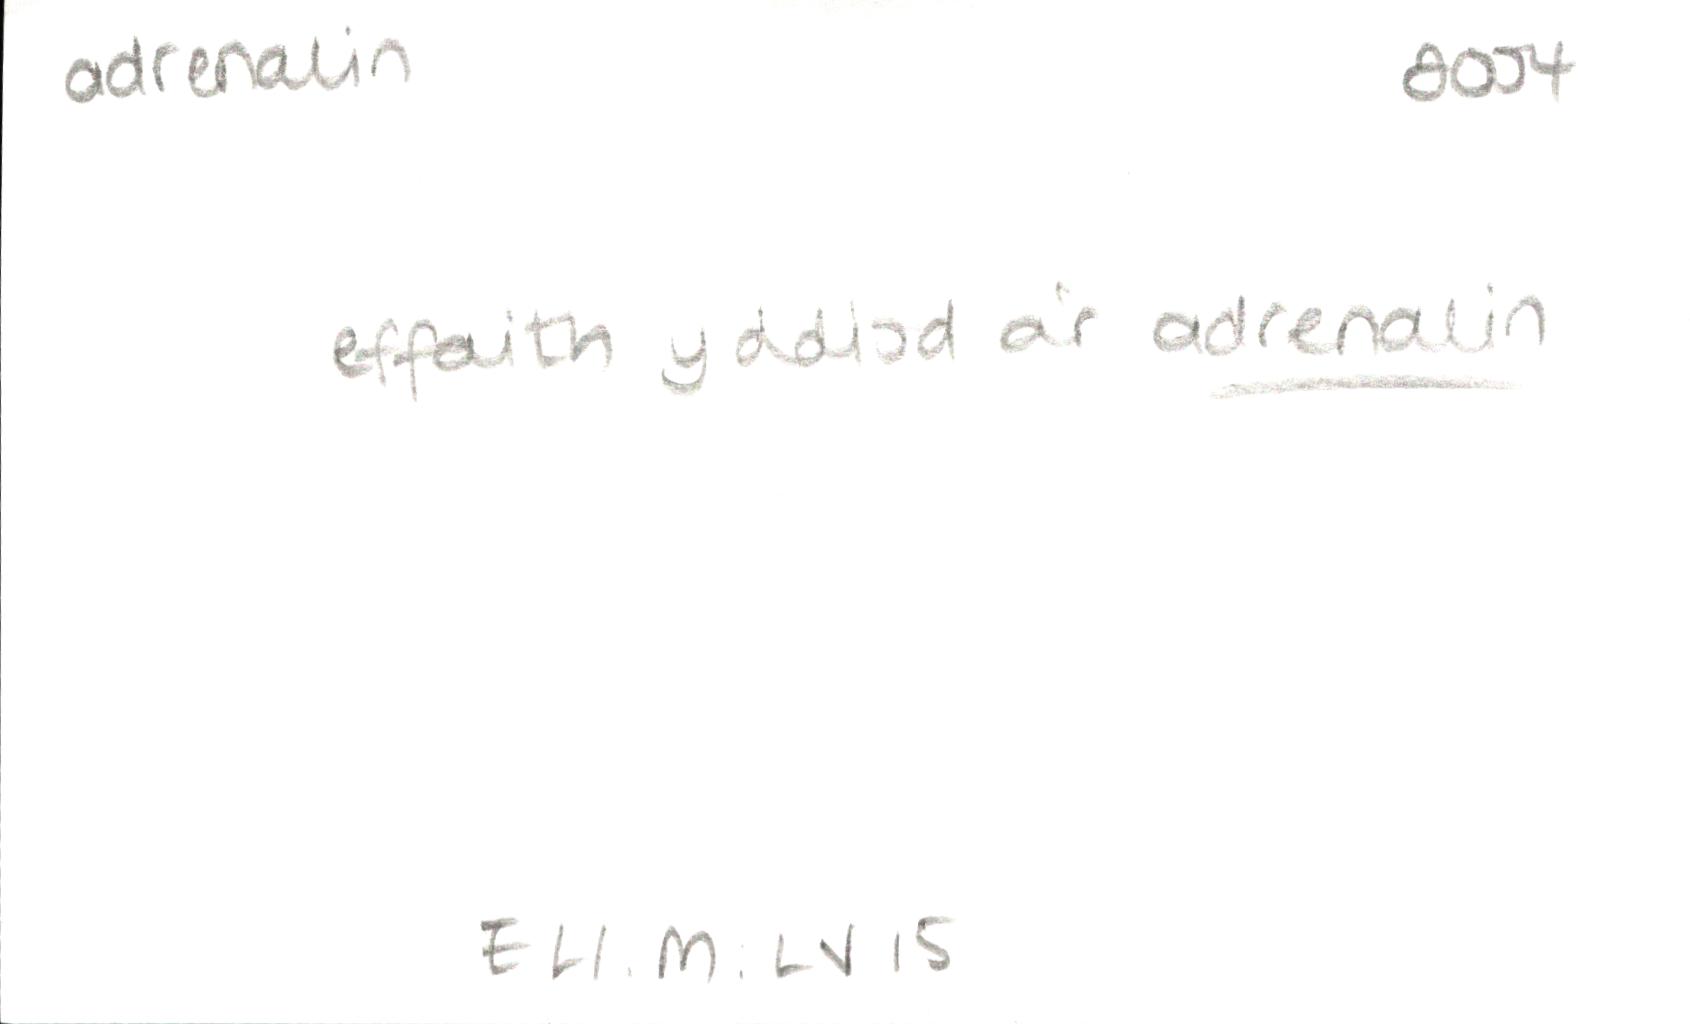 adrenalin 20J4
effaith y ddiod a'r adrenalin
E Ll. M: LV 15